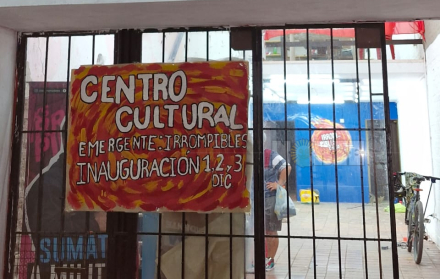 CENTRO
CULTURAL
EMERGENTE: IRROMPIBLES
INAUGURACIÓN 1, 2, 3
DIC
SUMAT